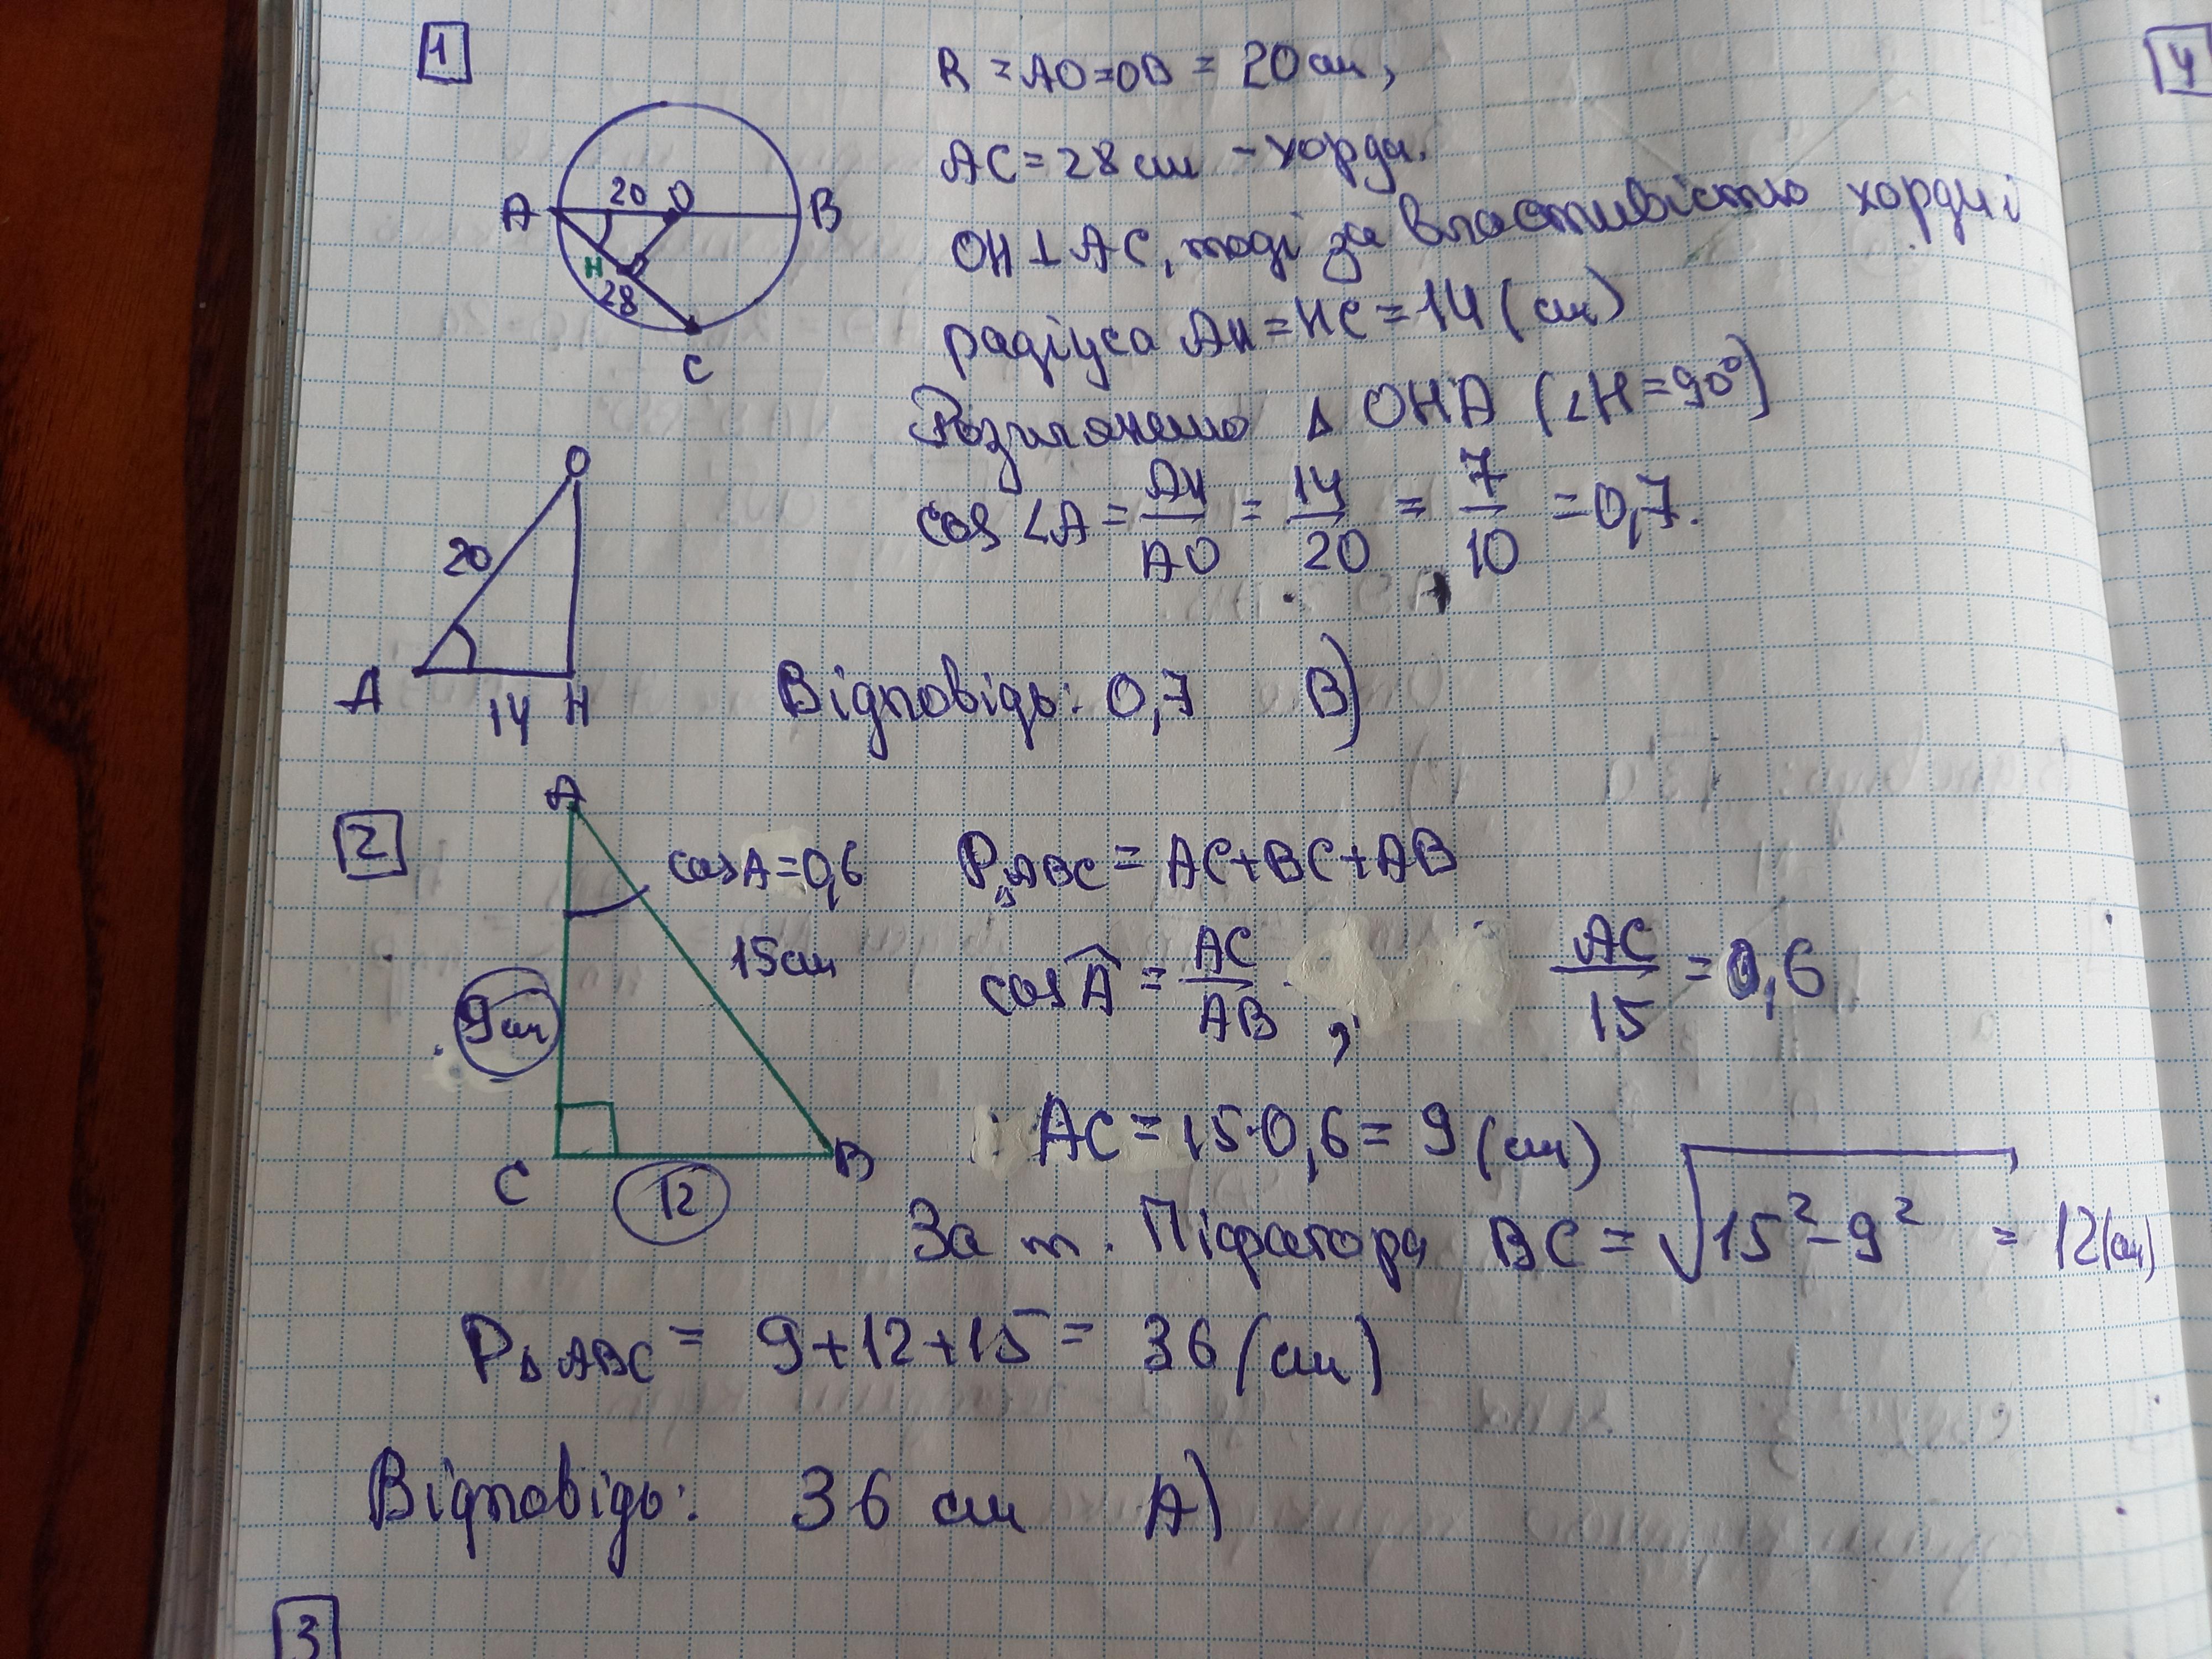 1
R = AO = OB = 20 см,
AC = 28 см - хорда.
OH ⊥ AC, тоді за властивістю хорди і
радіуса AH = HC = 14 (см)
Розглянемо Δ OHA (∠H = 90°)
cos ∠A = AH/AO = 14/20 = 7/10 = 0,7.
Відповідь: 0,7 В)
A 20 O B
H
28
C
O
20
A 14 H
2
A
cosA = 0,6
15 см
9 см
C 12 B
P△ABC = AC + BC + AB
cos Â = AC/AB , AC/15 = 0,6
AC = 15·0,6 = 9 (см)
За т. Піфагора BC = √15² - 9² = 12 (см)
PΔABC = 9 + 12 + 15 = 36 (см)
Відповідь: 36 см А)
3
4